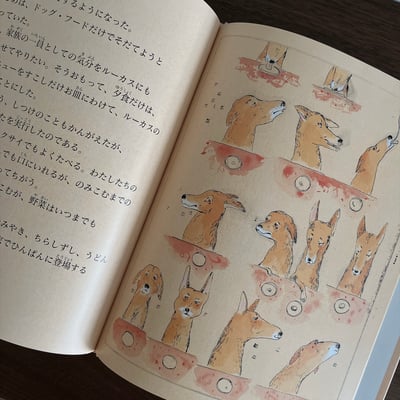 るようになった。
のは、ドッグ・フードだけでそだてようと
っていた。
、家族の一員としての気分をルーカスにも
せてやりたい。そうおもって、夕食だけは、
ューをすこしだけお皿にわけて、ルーカスの
ことにした。
、しつけのこともかんがえたが、
たを実行したのである。
クサイでもよくたべる。わたしたちの
でも口にいれるが、のみこむまでの
ってちがう。
こむが、野菜はいつまでも
みやき、ちらしずし、うどん
でひんぱんに登場する